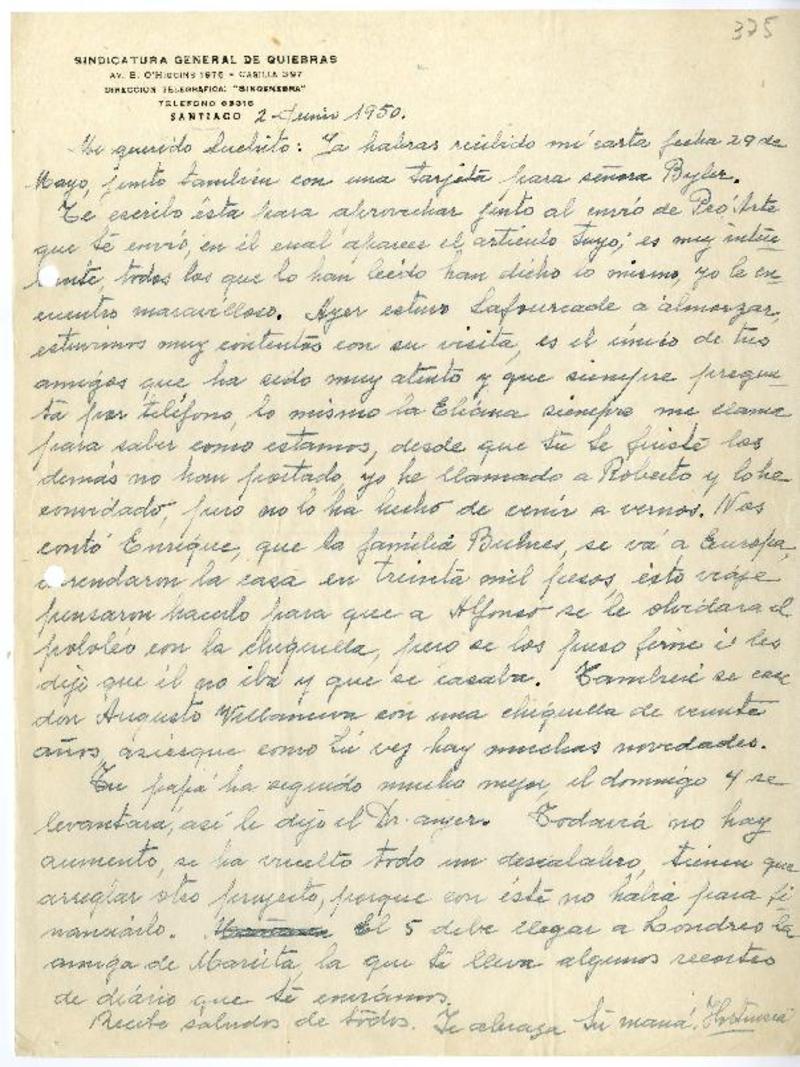 375
SINDICATURA GENERAL DE QUIEBRAS
AV. B. O'HIGGINS 1976 - CASILLA 397
DIRECCION TELEGRAFICA: "SINGENEBRA"
TELEFONO
SANTIAGO 2-Junio 1950.
Mi querido Luchito: Ya habras recibido mi carta fecha 29 de
Mayo, junto también con una tarjeta para señora Byler.
Te escribo ésta para aprovechar junto al envio de Pro' Arte
que té envió, en él cual aparece el articulo tuyo; es muy intere
sante, todos los que lo han leido han dicho lo mismo, yo le en_
cuentro maravilloso. Ayer estuvo Lafourcade a almorzar,
estuvimos muy contentos con su visita, es el único de tus
amigos que ha sido muy atento y que siempre pregun_
ta por teléfono, lo mismo la Eliana siempre me llama
para saber como estamos, desde que tú te fuisté los
demás no han portado, yo he llamado a Roberto y lo he
convidado, pero no lo ha hecho de venir a vernos. Nos
contó Enrique, que la familia Bulnes, se vá a Europa,
arrendaron la casa en treinta mil pesos, ésto viaje
pensaron hacerlo para que a Alfonso se le olvidara el
pololéo con la chiquilla, pero se los puso firme i les
dijo que él no iba y que se casaba. También se casa
don Augusto Villanueva con una chiquilla de veinte
años, asiesque como tú ves hay muchas novedades.
Tu papá ha seguido mucho mejor, el domingo 4 se
levantara, así le dijo el Dr. ayer. Todavía no hay
aumento, se ha vuelto todo un descalabro, tienen que
arreglar otro proyecto, porque con éste no había para fi_
nanciarlo. El 5 debe llegar a Londres la
amiga de Marita, la que té lleva algunos recortes
de diário que té enviámos.
Recibe saludos de todos. Te abraza tú mamá. Hortensia